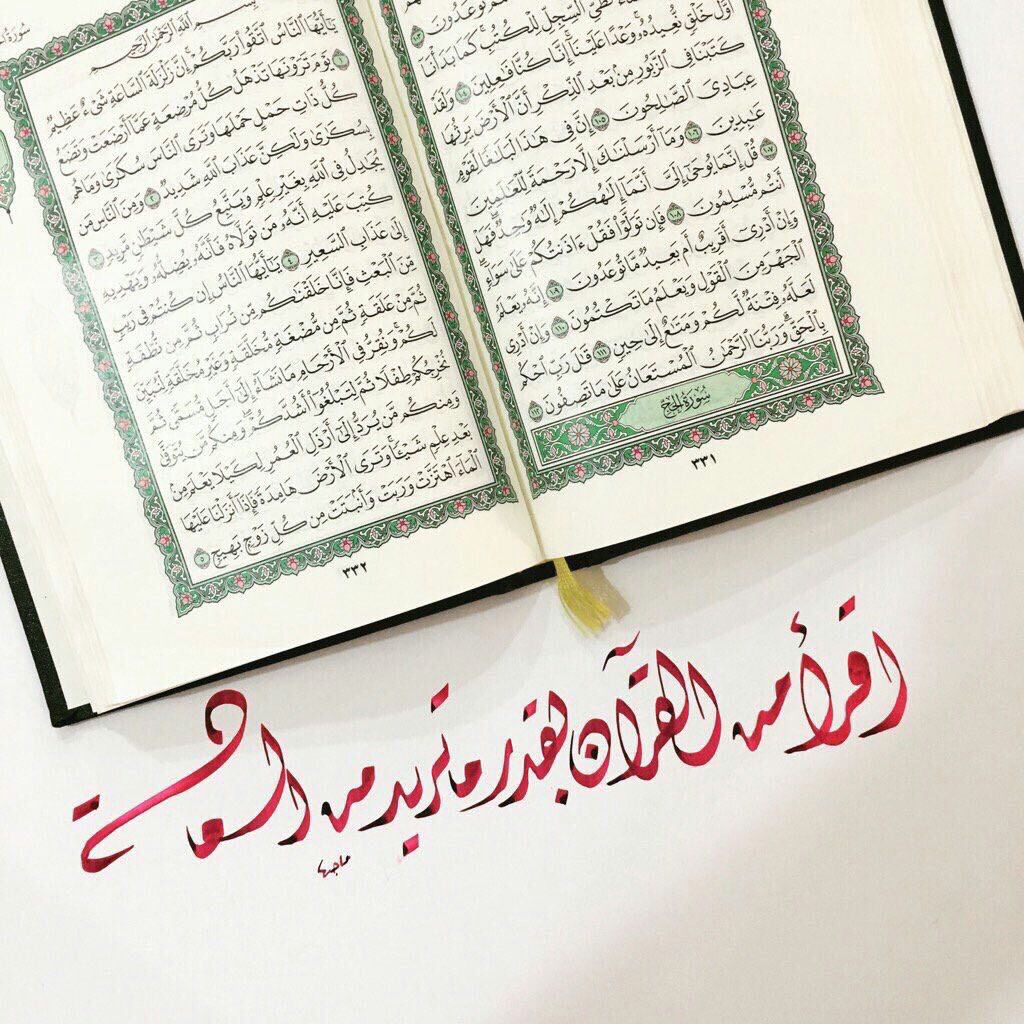 تُوعَدُونَ ١٠٣
كَطَىِّ ٱلسِّجِلِّ لِلْكُتُبِ كَمَا بَدَأْنَآ
أَوَّلَ خَلْقٍ نُّعِيدُهُۥ وَعْدًا عَلَيْنَآ إِنَّا كُنَّا فَٰعِلِينَ ١٠٤ وَلَقَدْ
كَتَبْنَا فِى ٱلزَّبُورِ مِنۢ بَعْدِ ٱلذِّكْرِ أَنَّ ٱلْأَرْضَ يَرِثُهَا
عِبَادِىَ ٱلصَّٰلِحُونَ ١٠٥ إِنَّ فِى هَٰذَا لَبَلَٰغًا لِّقَوْمٍ
عَٰبِدِينَ ١٠٦ وَمَآ أَرْسَلْنَٰكَ إِلَّا رَحْمَةً لِّلْعَٰلَمِينَ
١٠٧ قُلْ إِنَّمَا يُوحَىٰٓ إِلَىَّ أَنَّمَآ إِلَٰهُكُمْ إِلَٰهٌ وَٰحِدٌ فَهَلْ
أَنتُم مُّسْلِمُونَ ١٠٨ فَإِن تَوَلَّوْا۟ فَقُلْ ءَاذَنتُكُمْ عَلَىٰ سَوَآءٍ
وَإِنْ أَدْرِىٓ أَقَرِيبٌ أَم بَعِيدٌ مَّا تُوعَدُونَ ١٠٩ إِنَّهُۥ يَعْلَمُ
ٱلْجَهْرَ مِنَ ٱلْقَوْلِ وَيَعْلَمُ مَا تَكْتُمُونَ ١١٠ وَإِنْ أَدْرِى
لَعَلَّهُۥ فِتْنَةٌ لَّكُمْ وَمَتَٰعٌ إِلَىٰ حِينٍ ١١١ قَٰلَ رَبِّ ٱحْكُم
بِٱلْحَقِّ وَرَبُّنَا ٱلرَّحْمَٰنُ ٱلْمُسْتَعَانُ عَلَىٰ مَا تَصِفُونَ ١١٢
سُورَةُ الحَجّ
٣٣١
بِسْمِ ٱللَّهِ ٱلرَّحْمَٰنِ ٱلرَّحِيمِ
يَٰٓأَيُّهَا ٱلنَّاسُ ٱتَّقُوا۟ رَبَّكُمْ إِنَّ زَلْزَلَةَ ٱلسَّاعَةِ شَىْءٌ عَظِيمٌ
١ يَوْمَ تَرَوْنَهَا تَذْهَلُ كُلُّ مُرْضِعَةٍ عَمَّآ أَرْضَعَتْ وَتَضَعُ
كُلُّ ذَاتِ حَمْلٍ حَمْلَهَا وَتَرَى ٱلنَّاسَ سُكَٰرَىٰ وَمَا هُم
بِسُكَٰرَىٰ وَلَٰكِنَّ عَذَابَ ٱللَّهِ شَدِيدٌ ٢ وَمِنَ ٱلنَّاسِ مَن
يُجَٰدِلُ فِى ٱللَّهِ بِغَيْرِ عِلْمٍ وَيَتَّبِعُ كُلَّ شَيْطَٰنٍ مَّرِيدٍ ٣
كُتِبَ عَلَيْهِ أَنَّهُۥ مَن تَوَلَّاهُ فَأَنَّهُۥ يُضِلُّهُۥ وَيَهْدِيهِ
إِلَىٰ عَذَابِ ٱلسَّعِيرِ ٤ يَٰٓأَيُّهَا ٱلنَّاسُ إِن كُنتُمْ فِى رَيْبٍ
مِّنَ ٱلْبَعْثِ فَإِنَّا خَلَقْنَٰكُم مِّن تُرَابٍ ثُمَّ مِن نُّطْفَةٍ
ثُمَّ مِنْ عَلَقَةٍ ثُمَّ مِن مُّضْغَةٍ مُّخَلَّقَةٍ وَغَيْرِ مُخَلَّقَةٍ لِّنُبَيِّنَ
لَكُمْ وَنُقِرُّ فِى ٱلْأَرْحَامِ مَا نَشَآءُ إِلَىٰٓ أَجَلٍ مُّسَمًّى ثُمَّ
نُخْرِجُكُمْ طِفْلًا ثُمَّ لِتَبْلُغُوٓا۟ أَشُدَّكُمْ وَمِنكُم مَّن يُتَوَفَّىٰ
وَمِنكُم مَّن يُرَدُّ إِلَىٰٓ أَرْذَلِ ٱلْعُمُرِ لِكَيْلَا يَعْلَمَ مِنۢ
بَعْدِ عِلْمٍ شَيْـًٔا وَتَرَى ٱلْأَرْضَ هَامِدَةً فَإِذَآ أَنزَلْنَا عَلَيْهَا
ٱلْمَآءَ ٱهْتَزَّتْ وَرَبَتْ وَأَنۢبَتَتْ مِن كُلِّ زَوْجٍۭ بَهِيجٍ ٥
٣٣٢
اقرأ من القرآن بقدر ما تريد من السعادة